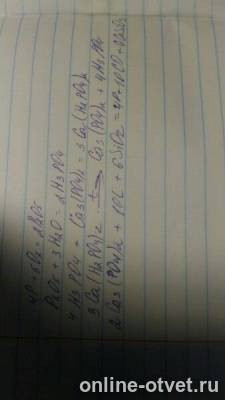 4P + 5O2 = 2P2O5
P2O5 + 3H2O = 2H3PO4
4H3PO4 + Ca3(PO4)2 = 3Ca(H2PO4)2
3Ca(H2PO4)2 t→ Ca3(PO4)2 + 4H3PO4
2Ca3(PO4)2 + 10C + 6SiO2 = 4P + 10CO +
online-otvet.ru